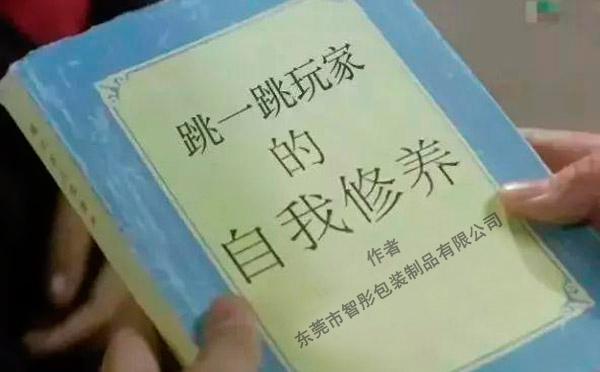 跳一跳玩家
的
自我修养
作者
东莞市智彤包装制品有限公司